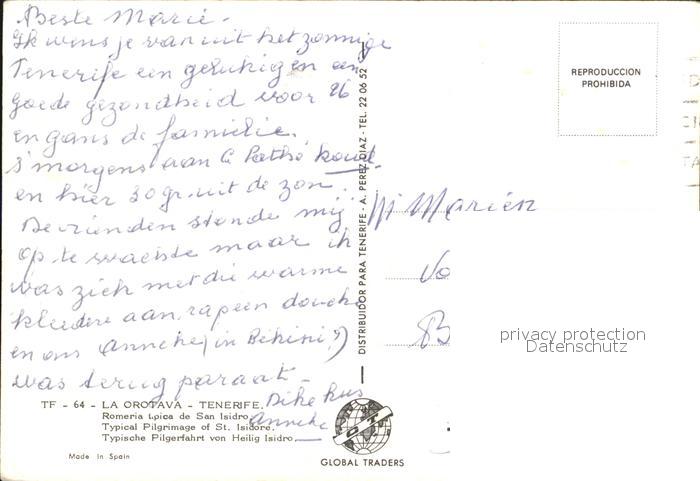 Beste Marie.
Ik wens je vanuit het zonnige
Tenerife een gelukkigen en
goede gezondheid voor 86
en gans de familie.
s'morgens aan koud
en hier 30 gr. uit de zon.
De vrienden stonde mij
op te wachte maar ik
was ziek met die warme
kledere aan, rap een douche
en ons Anneke (in Bikini)
was terug paraat.
Dike kus
Anneke
TF - 64 - LA OROTAVA - TENERIFE.
Romeria tipica de San Isidro.
Typical Pilgrimage of St. Isidore.
Typische Pilgerfahrt von Heilig Isidro.
Made in Spain
DISTRIBUIDOR PARA TENERIFE - A. PEREZ DIAZ - TEL. 22 06 52
GLOBAL TRADERS
REPRODUCCION
PROHIBIDA
Marien
Vo
B
privacy protection
Datenschutz